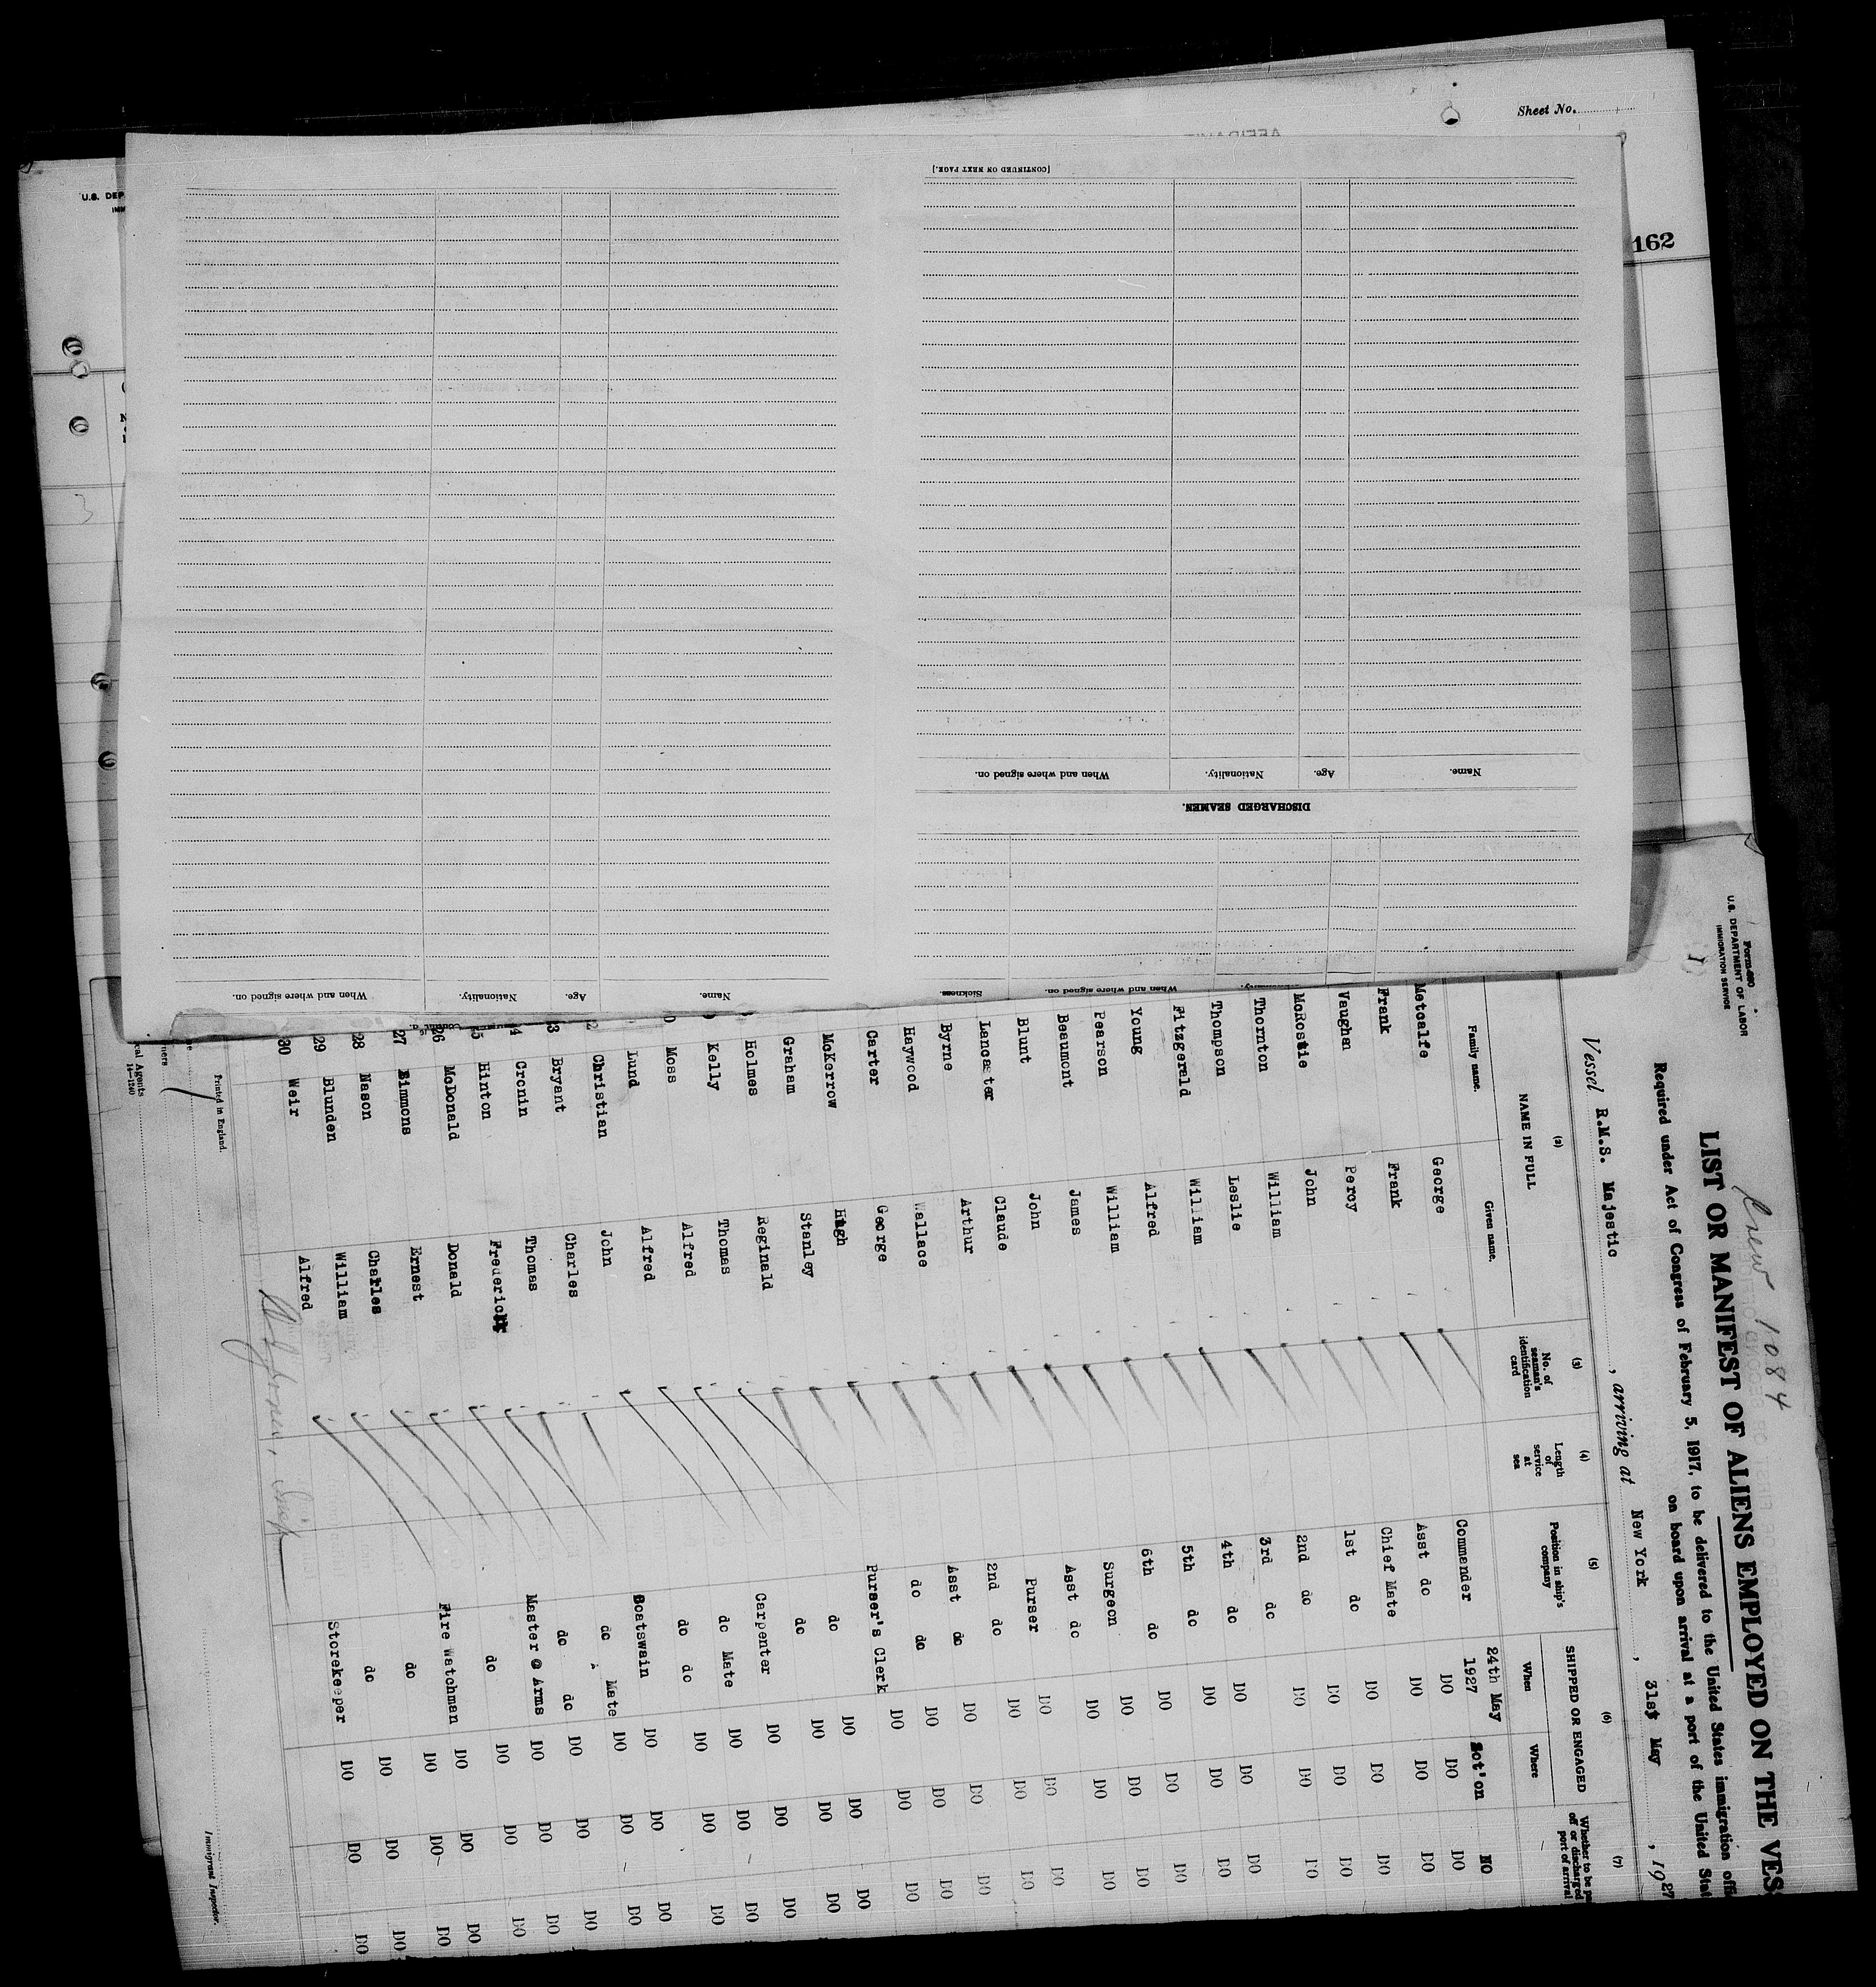 Sheet No.
162
U.S. DEP
IMM
3
[CONTINUED ON NEXT PAGE.]
Name. Age. Nationality. When and where signed on.
DISCHARGED SEAMEN.
Sickness When and where signed on.
Name. Age. Nationality. When and where signed on.
Form 680
U.S. DEPARTMENT OF LABOR
IMMIGRATION SERVICE
1
Crew 1084
LIST OR MANIFEST OF ALIENS EMPLOYED ON THE VES
Required under Act of Congress of February 5, 1917, to be delivered to the United States immigration offi
on board upon arrival at a port of the United Stat
Vessel R.M.S. Majestic, arriving at New York, 31st May, 1927
(2) (3) (4) (5) (6) (7)
NAME IN FULL
Family name. Given name.
No. of seaman's identification card
Length of service at sea
Position in ship's company
SHIPPED OR ENGAGED
When Where
Whether to be pa
off or discharged
port of arrival
24th May 1927 Sot'on NO
Metcalfe George Commander DO DO DO
Frank Frank Asst do DO DO DO
Vaughan Percy Chief Mate DO DO DO
McRostie John 1st do DO DO DO
Thornton William 2nd do DO DO DO
Thompson Leslie 3rd do DO DO DO
Fitzgerald William 4th do DO DO DO
Young Alfred 5th do DO DO DO
Pearson William 6th do DO DO DO
Beaumont James Surgeon DO DO DO
Blunt John Asst do DO DO DO
Lancaster Claude Purser DO DO DO
Byrne Arthur 2nd do DO DO DO
Haywood Wallace Asst do DO DO DO
Carter George do do DO DO DO
McKerrow Hugh Purser's Clerk DO DO DO
Graham Stanley do DO DO DO
Holmes Reginald do DO DO DO
Kelly Thomas Carpenter DO DO DO
Moss Alfred do Mate DO DO DO
Lund Alfred do do DO DO DO
Christian John Boatswain DO DO DO
Bryant Charles do Mate DO DO DO
Cronin Thomas do do DO DO DO
Hinton Frederick Master @ Arms DO DO DO
26 McDonald Donald do DO DO DO
27 Simmons Ernest Fire Watchman DO DO DO
28 Nason Charles do DO DO DO
29 Blunden William do DO DO DO
30 Weir Alfred Storekeeper DO DO DO
Printed in England.
cal Agents
14—1240
Immigrant Inspector.